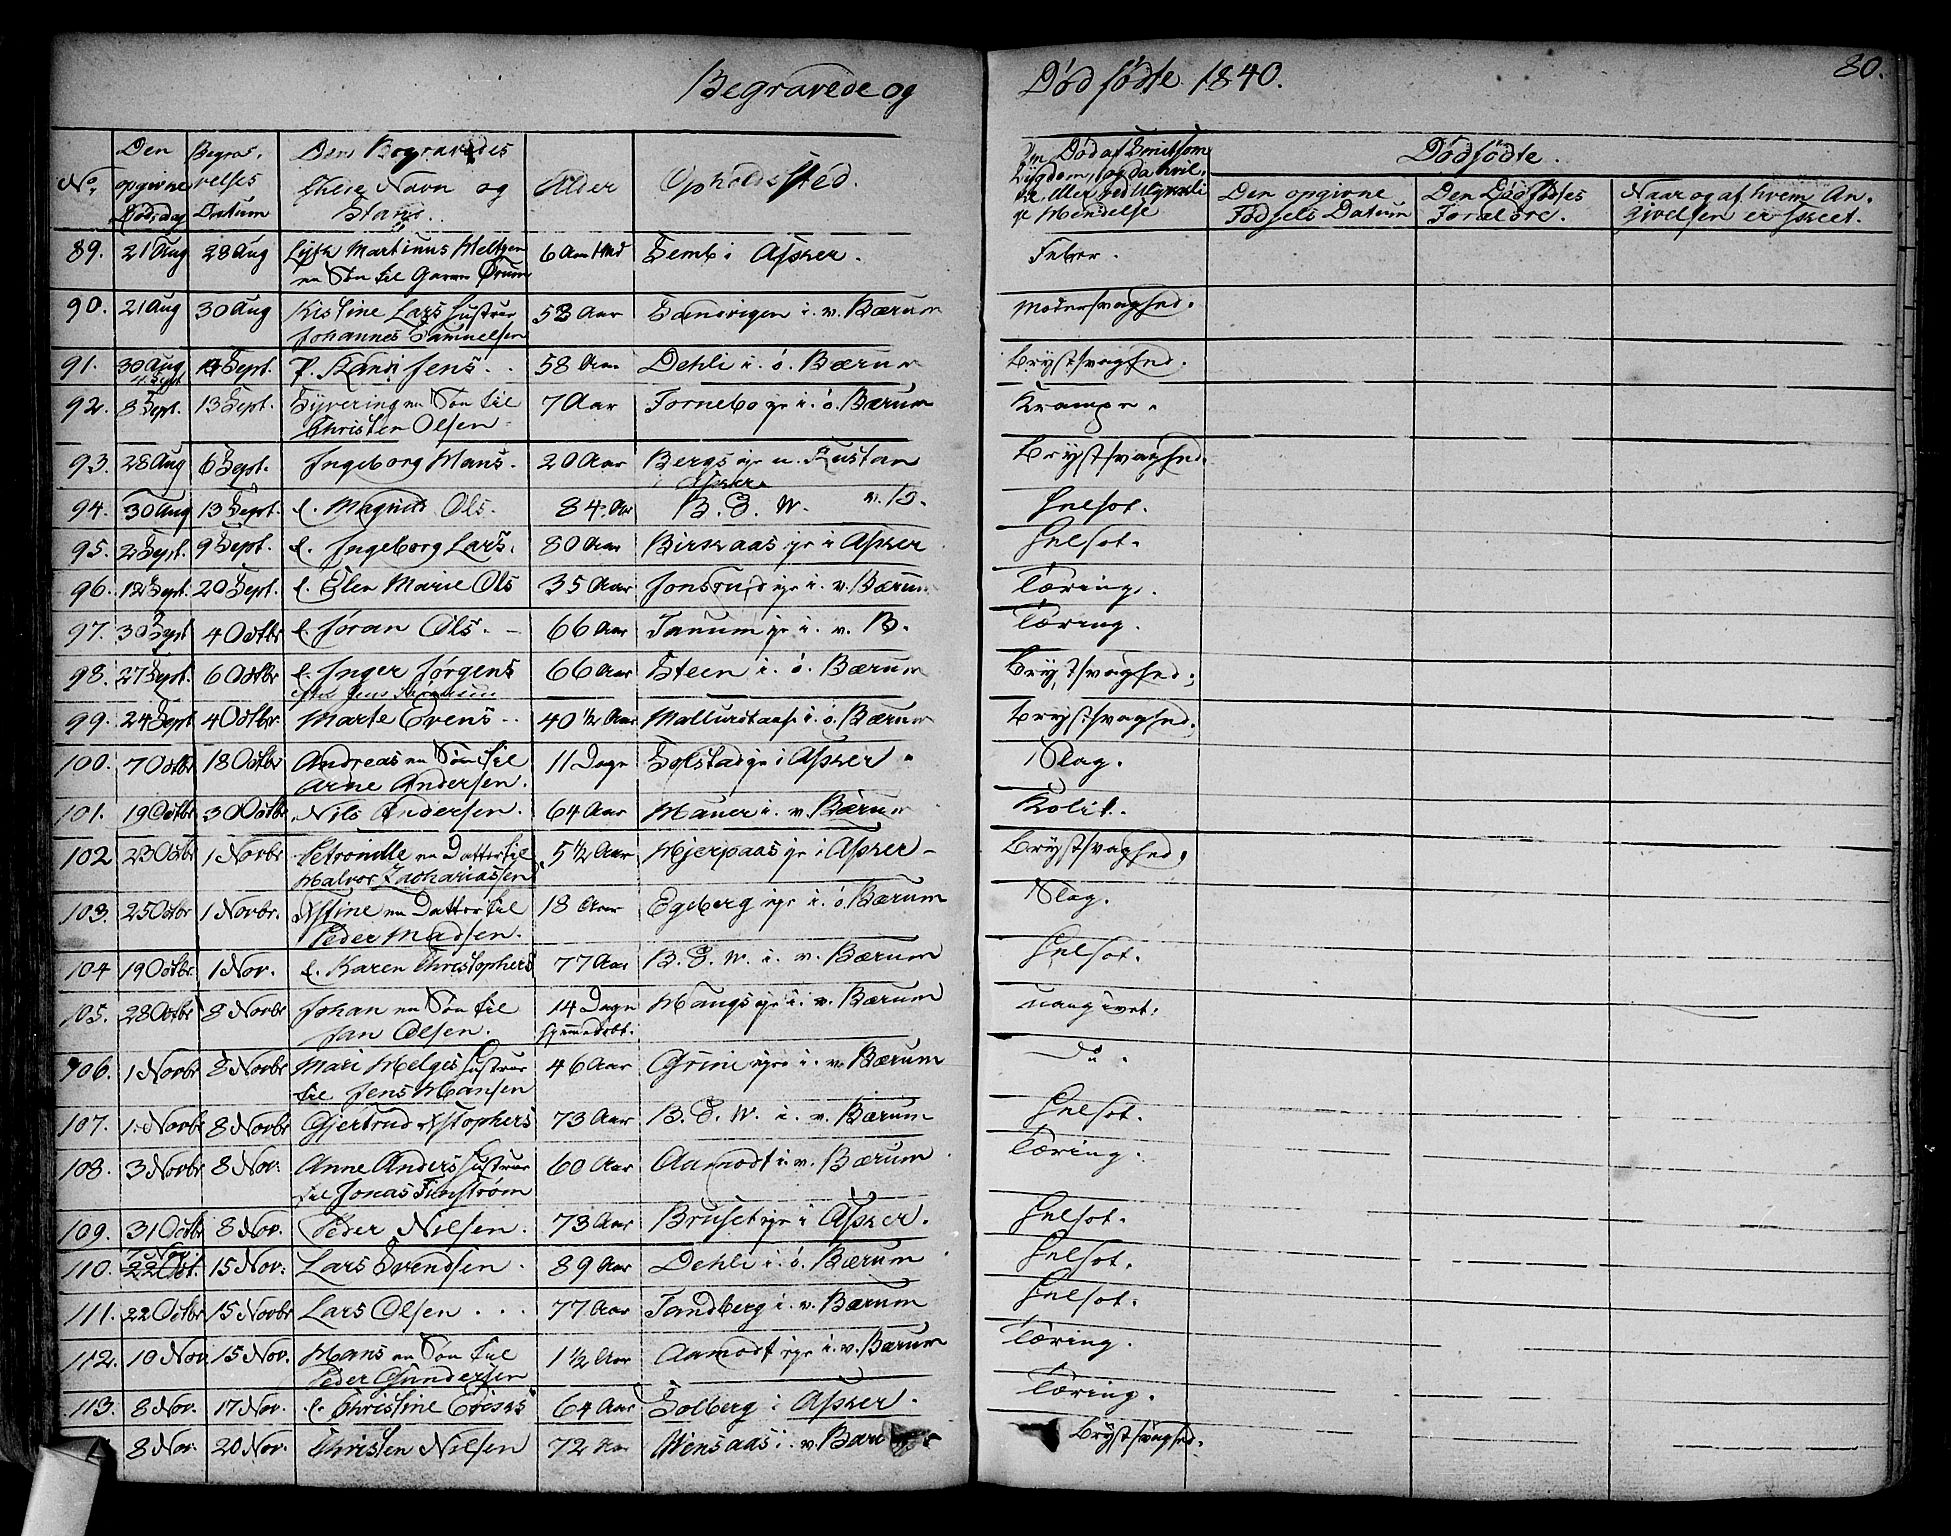 Begravede og Dødfødte 1840. 80.
No. Den opgivne Dødsdag Begravelses Datum Den Begravedes fulde Navn og Stand. Alder Opholdssted. Dødfødte.
Den opgivne Fødsels Datum Den Dødfødtes Forældre. Naar og af hvem Angivelsen er skeet.
89. 21 Aug 28 Aug Martinus 6 Aar Semb i Asker. Feber.
en Søn til
90. 21 Aug 30 Aug Kistine Lars Hustrue 58 Aar Sandvigen i. v. Bærum Modersvaghed.
Johannes Samuelsen
91. 30 Aug Sept. Jens. 58 Aar Dehli i. ö. Bærum Brystsvaghed.
4 Sept
92. 8 Sept. 13 Sept. Syvering en Søn til 7 Aar Fornebo i. ö. Bærum Krampe.
Christen Olsen.
93. 28 Aug 6 Sept. Ingeborg Hans. 20 Aar Bergs Brystsvaghed.
Asker
94. 30 Aug 13 Sept. e. Magnild Ols. 84. Aar B. S. W. v. B. Helsot.
95. 2 Sept. 9 Sept. e. Ingeborg Lars. 80 Aar Birkaas eje i Asker Helsot.
96. 12 Sept. 20 Sept. e. Elen Marie Ols 35 Aar Jonsrud eje i. v. Bærum Tæring.
97. 30 Sept 4 Octbr e. Joran Ols. 66 Aar Tanum eje i. v. B. Tæring.
98. 27 Sept. 6 Octbr e. Inger Jørgens 66 Aar Steen i. ö. Bærum Brystsvaghed.
99. 24 Sept 4 Octbr. Marte Evens 40 ½ Aar i. ö. Bærum Brystsvaghed.
100. 7 Octbr 18 Octbr Andreas en Søn til 11 Dage Solstad eje i Asker Slag.
Arne Andersen.
101. 19 Octbr 30 Octbr Nils Andersen. 64 Aar Hauer i. v. Bærum Kolik.
102 23 Octbr 1 Novbr Petronille en Datter til 5 ½ Aar Hjerpaas eje i Asker Brystsvaghed.
Halvor Zachariassen
103. 25 Octbr 1 Novbr. Xstine en Datter til 18 Aar Egeberg eje i. ö. Bærum Slag.
Peder Madsen.
104 19 Octbr 1 Nov. e. Karen Christophers 77 Aar B. S. W. i. v. Bærum Helsot.
105. 28 Octbr 8 Novbr Johan en Søn til 14 Dage Haugs eje i. v. Bærum uangivet.
Jan Olsen. hjemmedøbt.
106. 1 Novbr 8 Novbr Mari Helges Hustrue 46 Aar Grini eje i. v. Bærum Do.
til Jens Hansen
107. 1. Novbr 8 Novbr Gjertrud Xstophers 73 Aar B. S. W. i. v. Bærum Helsot.
108. 3 Novbr 8 Nov. Anne Anders Hustrue 60 Aar Aamodt i. v. Bærum Tæring.
til Jonas Finstrøm
109. 31 Octbr 8 Nov. Peder Nilsen. 73 Aar Bruset eje i Asker. Helsot.
7 Nov.
110. 22 Oct. 15 Nov. Lars Svendsen. 89 Aar Dehli i. ö. Bærum Helsot.
111. 22 Octbr 15 Novbr Lars Olsen. 77 Aar Tandberg i. v. Bærum Helsot.
112. 10 Nov. 15 Nov. Hans en Søn til 1 ½ Aar Aamodt eje i. v. Bærum Tæring.
Peder Gundersen
113. 8 Nov. 17 Nov. e. Christine 64 Aar Solberg i Asker. Tæring.
8 Nov. 20 Nov. Christen Nilsen 72 Aar i. v. Brystsvaghed.